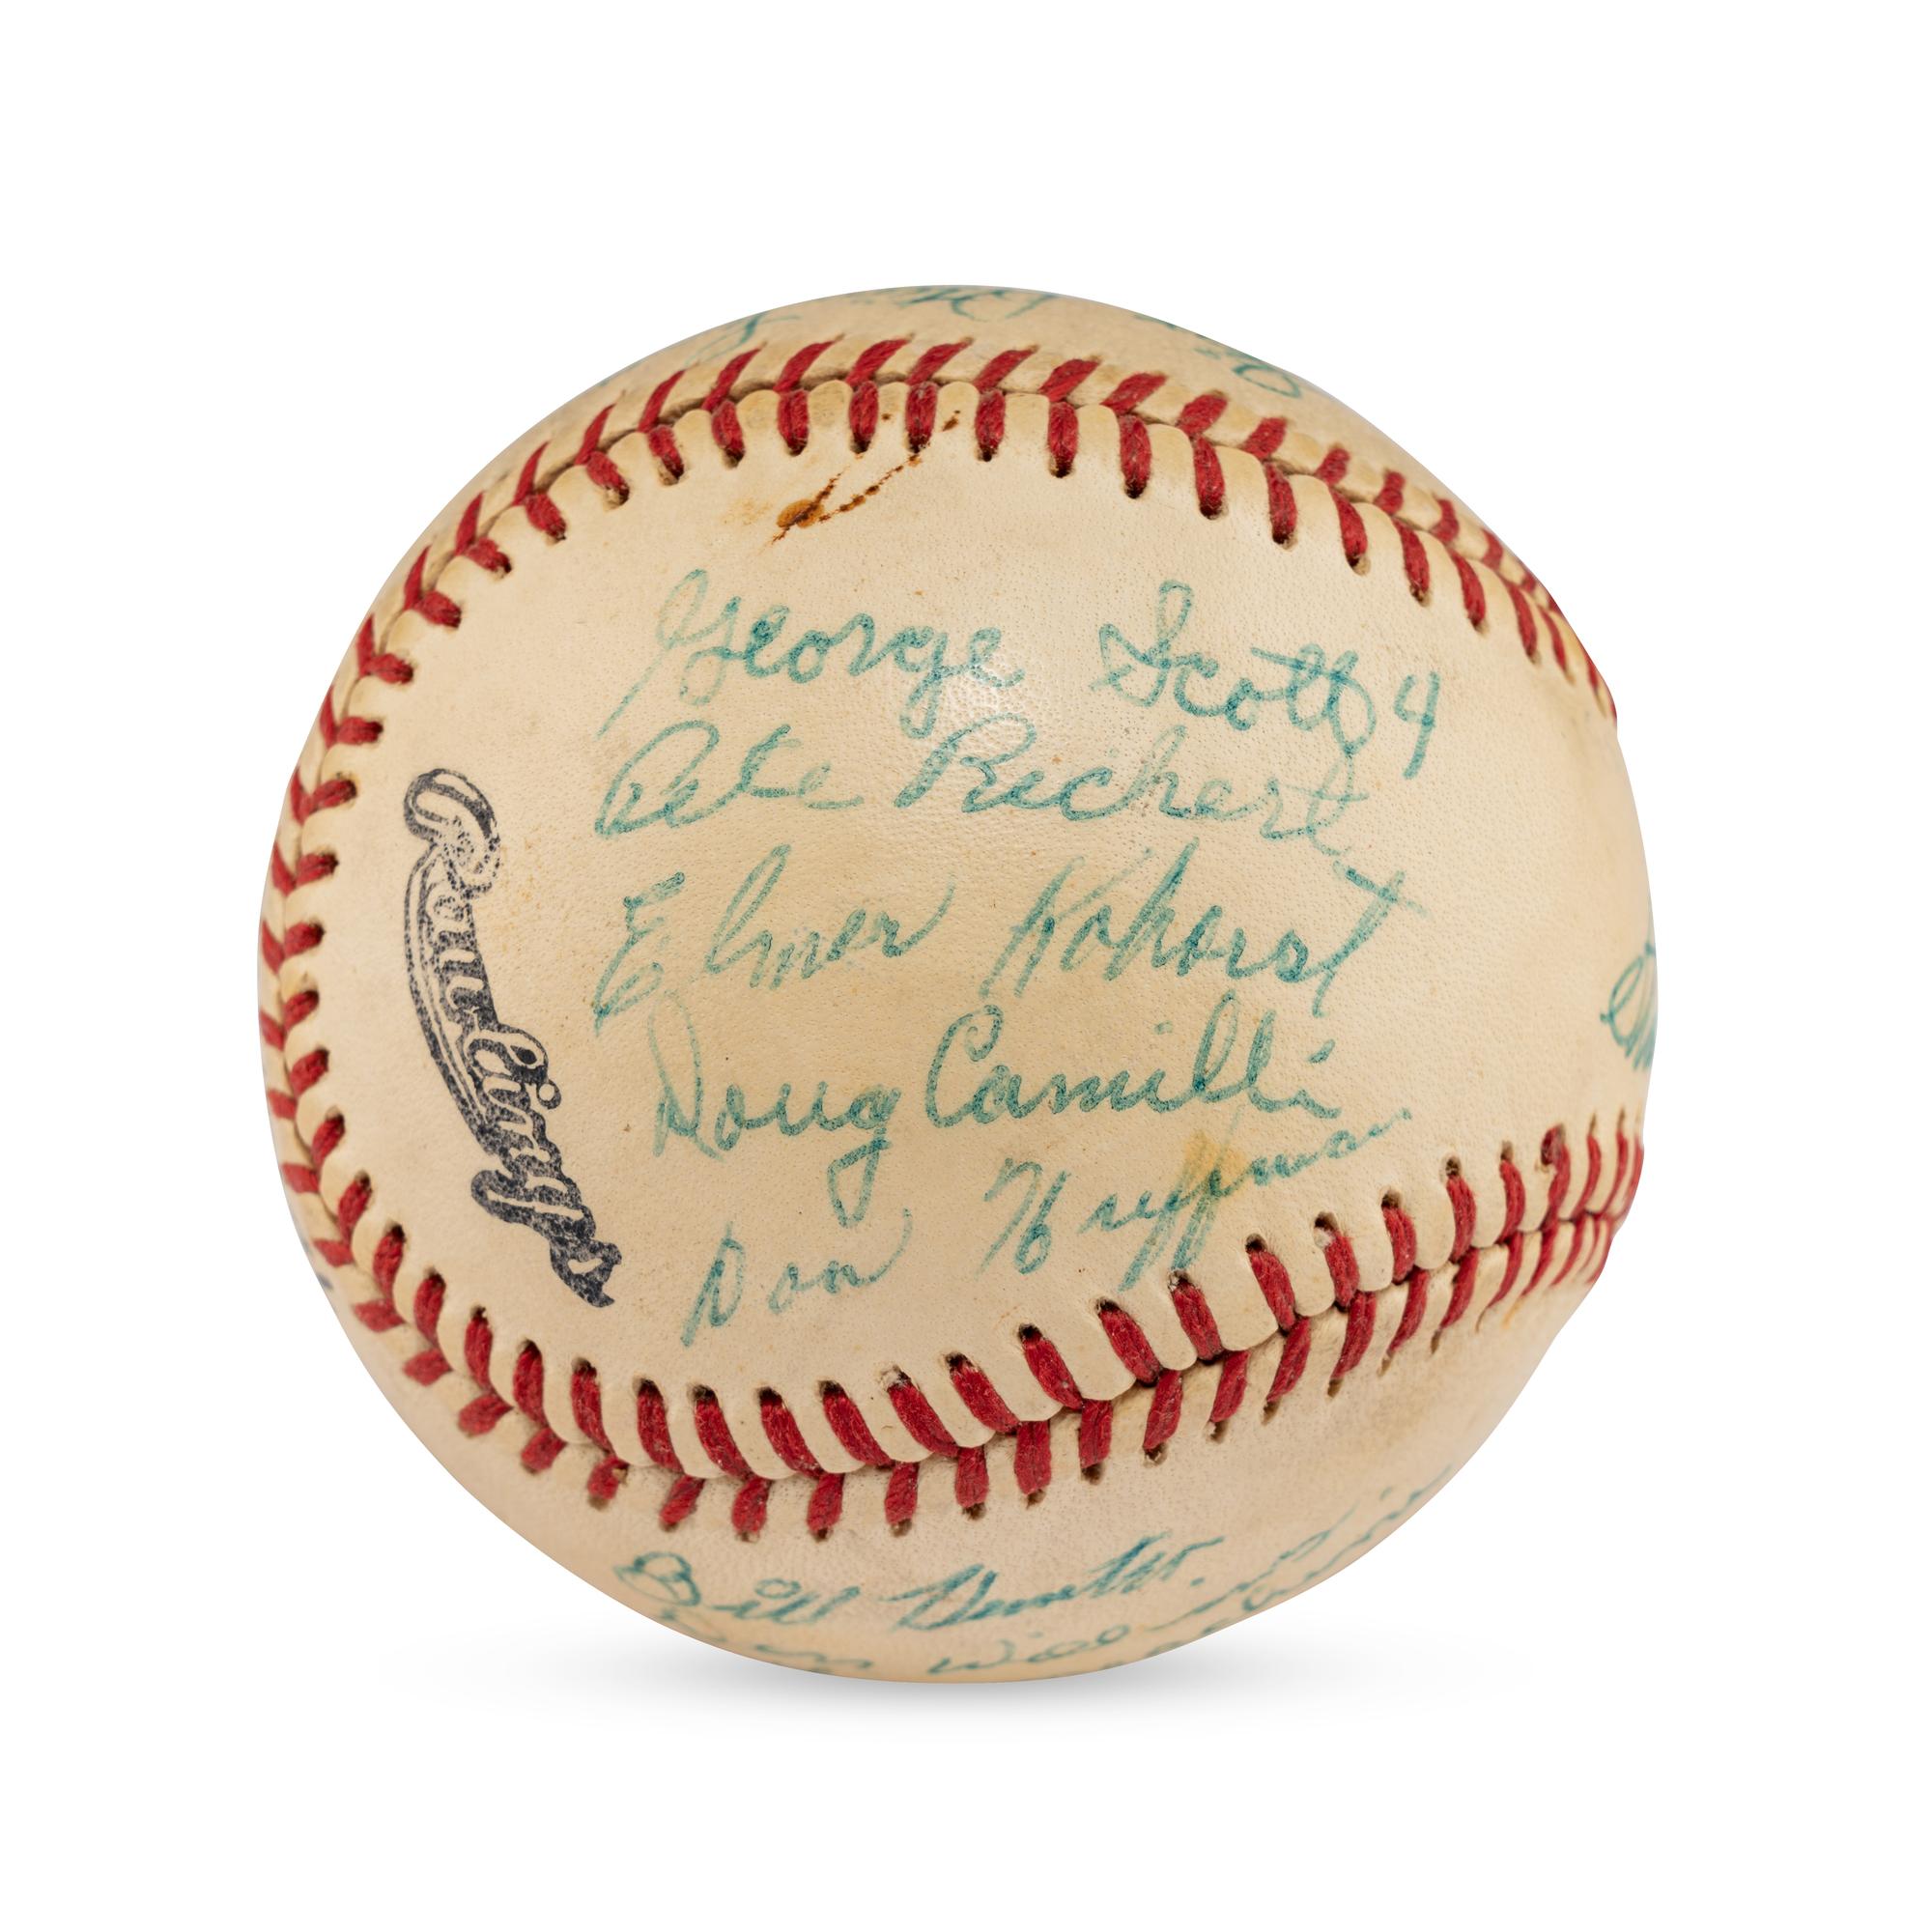 George Scott 4
Pete Richert
Elmer Kohorst
Doug Camilli
Don Huffman
Rawlings
Bill